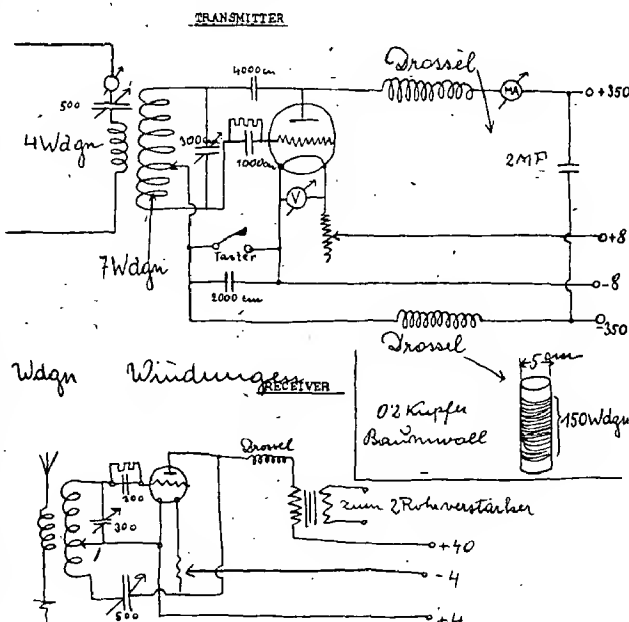 TRANSMITTER
Drossel
4000cm
MA
+350
500
4 Wdgn
300
1000cm
2MF
V
+8
7 Wdgn
Taster
2000 cm
-8
-350
Drossel
Wdgn Windungen
RECEIVER
5 cm
0'2 Kupfer
Baumwoll
150 Wdgn
Drossel
200
300
zum 2 Rohrverstärker
+40
-4
500
+4